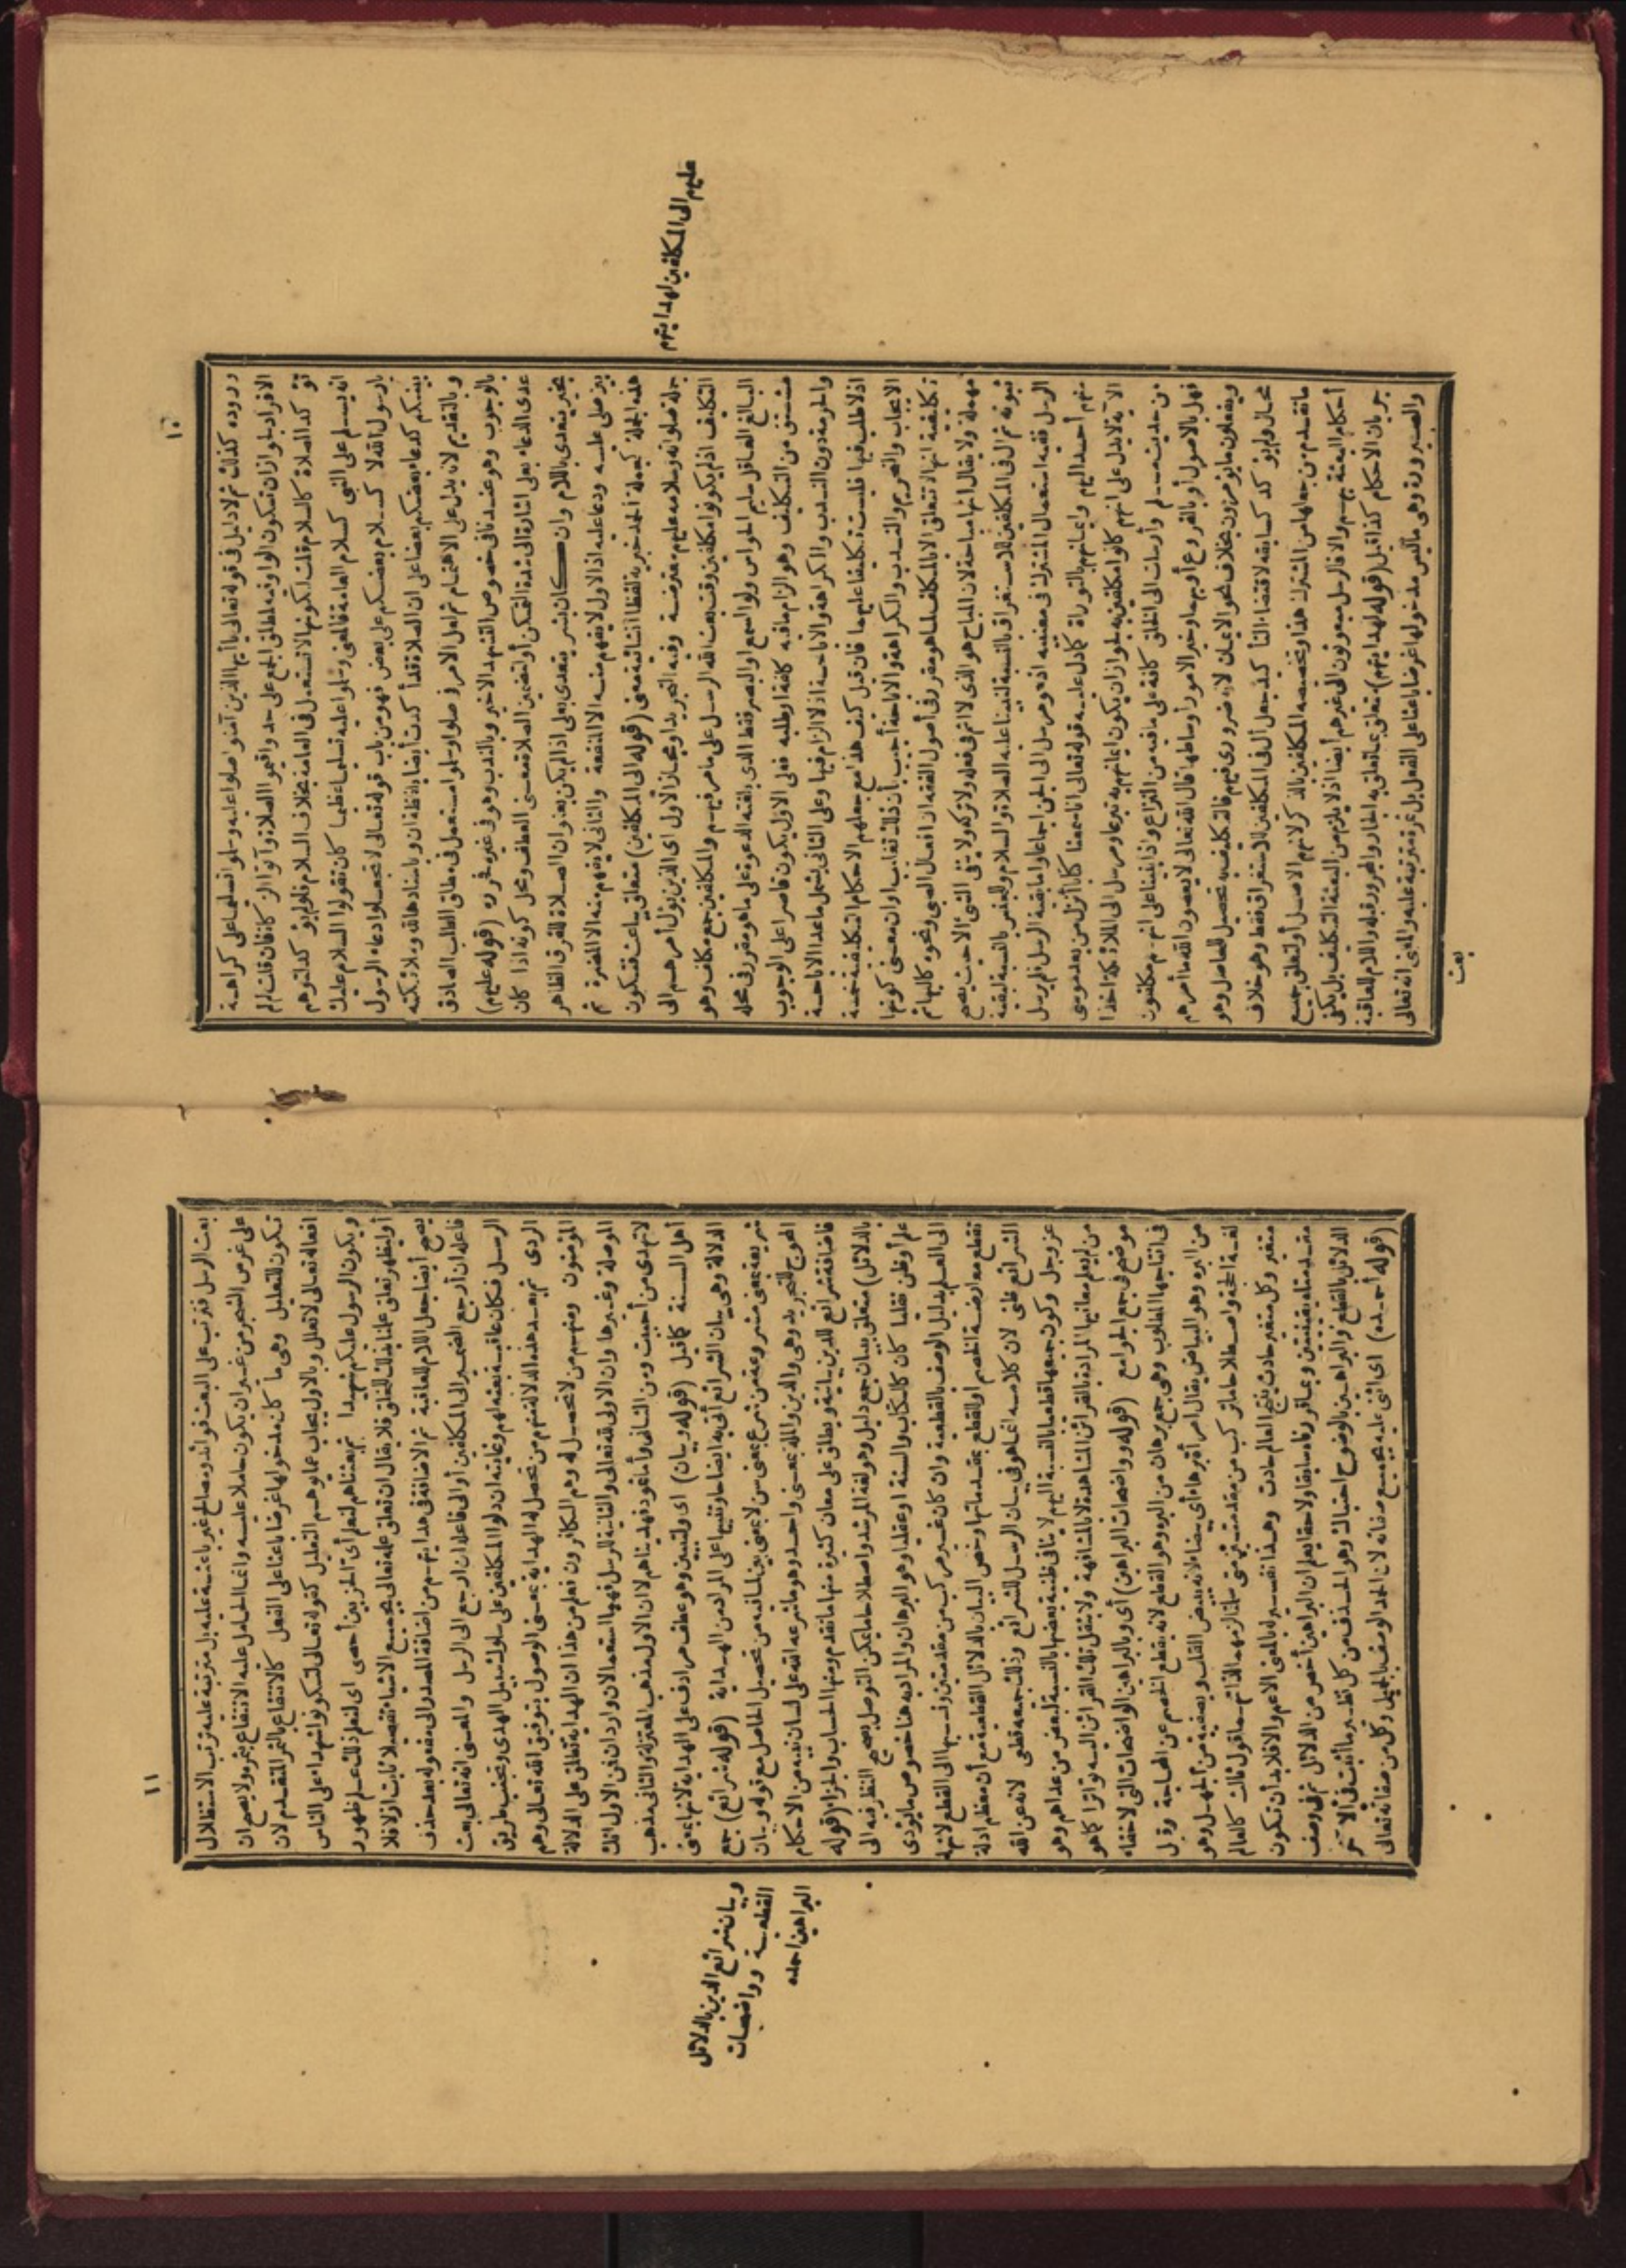 ١٠
وروده كذلك ثم لا دليل فى قوله تعالى يا أيها الذين آمنوا صلوا عليه وسلموا تسليما على كراهة
الافراد لجواز ان تكون الواو فيه لمطلق الجمع على حد واقيموا الصلاة وآتوا الزكاة فان قلت لم لم
تؤكد الصلاة كالسلام قلت لكونها لا تستعمل فى العامة بخلاف السلام فلو لم يؤكد لتوهم
انه يسلم على النبى كسلام العامة فالمعنى وسلموا عليه تسليما عظيما كان تقولوا السلام عليك
يا رسول الله لا كسلام بعضكم على بعض فهو من باب قوله تعالى لا تجعلوا دعاء الرسول
بينكم كدعاء بعضكم بعضا على ان الصلاة قد أكدت أيضا بلفظة ان وباسنادها لله وملائكته
وبالتقديم لانه يدل على الاهتمام ثم لعل الامر فى صلوا وسلموا مستعمل فى مطلق الطلب الصادق
بالوجوب وهو عندنا فى خصوص التشهد الاخير وبالندب وهو فى غيره (قوله عليهم)
عدى الدعاء بعلى اشارة الى شدة التمكن أو لتضمين الصلاة معنى العطف ومحل كونه اذا كان
بخير يتعدى باللام وان كان بشر يتعدى بعلى اذا لم يكن بعنوان الصلاة للفرق الظاهر
بين صلى عليه ودعا عليه اذ الاول لا يفهم منه الا المنفعة والثانى لا يفهم منه الا المضرة ثم
هذه الجملة كجملة الحمد خبرية لفظا انشائية معنى (قوله الى المكلفين) متعلق بباعث فتكون
جملة صلواته وسلامه عليهم معترضة وفيه التجريد او مجاز الاول اى الذين يؤل أمرهم الى
التكليف اذ لم يكونوا مكلفين وقت بعث الله الرسل على ما مر فيهم والمكلفين جمع مكلف وهو
البالغ العاقل سليم الحواس ولو السمع او البصر فقط الذى بلغته الدعوة على ما هو مقرر فى محله
مشتق من التكليف وهو الزام ما فيه كلفة او طلبه فعلى الاول يكون قاصرا على الوجوب
والحرمة دون الندب والكراهة والاباحة اذ لا الزام فيها وعلى الثانى يشمل ما عدا الاباحة
اذ لا طلب فيها فليست تكليفا عليهما فان قيل كيف هذا مع جعلهم الاحكام التكليفية خمسة
الايجاب والتحريم والندب والكراهة والاباحة أجيب بأن ذلك تغليب او ان معنى كونها
تكليفية انها لا تتعلق الا بالمكلف لما هو مقرر فى أصول الفقه ان افعال الصبى ونحوه كالبهائم
مهملة ولا يقال انها مباحة لان المباح هو الذى لا اثم فى فعله ولا تركه ولا ينفى الشئ الا حيث يصح
ثبوته ثم ال فى المكلفين للاستغراق بالنسبة لنبينا عليه الصلاة والسلام وللجنس بالنسبة لبقية
الرسل ففيه استعمال المشترك فى معنييه اذ هو مرسل الى الجن اجماعا واما بقية الرسل فلم يرسل
منهم أحد اليهم وايمانهم بالتوراة كما دل عليه قوله تعالى انا سمعنا كتابا أنزل من بعد موسى
الآية لا يدل على انهم كانوا مكلفين به لجواز ان يكون ايمانهم به تبرعا ومرسل الى الملائكة اخذا
من حديث مسلم وأرسلت الى الخلق كافة على ما فيه من النزاع واذا بنينا على انهم مكلفون
فهل بالاصول أو بالفروع أو بهما وخير الامور أوساطها قال الله تعالى لا يعصون الله ما أمرهم
ويفعلون ما يؤمرون بخلاف نحو الايمان لانه ضرورى فيهم فالتكليف به تحصيل للحاصل وهو
محال ولم يؤكد كسابقه لاقتضاء التأكيد جعل ال فى المكلفين للاستغراق فقط وهو خلاف
ما تقدم من جعلها من المشترك هذا وتخصيصه المكلفين بالذكر لانهم الاصل أو لتعلق جميع
أحكام البعثة بهم والا فالرسل مبعوثون الى غيرهم أيضا اذ لا يلزم من البعثة التكليف بل يكفى
جريان الاحكام كذا قيل (قوله لهدايتهم) متعلق بما تعلق به الجار والمجرور قبله واللام للعاقبة
والصيرورة وهى ما ليس مدخولها غرضا باعثا على الفعل بل ثمرة مترتبة عليه والمعنى انه تعالى
بعث
عليهم الى المكلفين لهدايتهم
١١
بعث الرسل فترتب على البعث فوائد ومصالح غير باعثة عليه بل مترتبة عليه ترتب الاستظلال
على غرس الشجر من غير ان يكون حاملا عليه وانما الحامل عليه الانتفاع بثمره ولا يصح ان
تكون للتعليل وهى ما كان مدخولها غرضا باعثا على الفعل كالانتفاع بالثمر المتقدم لان
افعاله تعالى لا تعلل وبالاول يجاب عما يوهم التعليل كقوله تعالى لتكونوا شهداء على الناس
ويكون الرسول عليكم شهيدا ثم بعثناهم لنعلم أى الحزبين أحصى اى لنعلم ذلك علم ظهور
أو ليظهر تعلق علمنا بذلك للخلق فلا يقال ان تعلق علمه تعالى بجميع الاشياء تفصيلا ثابت ازلا فلا
يصح أيضا جعل اللام للعاقبة ثم الاضافة فى هدايتهم من اضافة المصدر الى مفعوله بعد حذف
فاعله ان أرجع الضمير الى المكلفين أو الى فاعله ان ارجع الى الرسل والمعنى انه تعالى بعث
الرسل فكان عاقبة بعثه لهم وغايته ان دلوا المكلفين على سلوك سبيل الهدى وتجنب طريق
الردى ثم بعد هذه الدلالة منهم من تحصل له الهداية بمعنى الوصول بتوفيق الله تعالى وهم
المؤمنون ومنهم من لا تحصل له وهم الكافرون فعلم من هذا ان الهداية تطلق على الدلالة
الموصلة وغيرها وان الاولى لله تعالى والثانية للرسل فهما استعمالان واردان فمن الاول انك
لا تهدى من أحببت ومن الثانى وأما ثمود فهديناهم لان الاول مذهب المعتزلة والثانى مذهب
أهل السنة كما قيل (قوله وبيان) اى ولتبيين وهو عطف مرادف على الهداية لانها بمعنى
الدلالة وهى بيان الشرائع أتى به ايضاحا وتنبيها على المراد من الهداية (قوله شرائع) جمع
شريعة بمعنى مشروعة من شرع بمعنى سن لا بمعنى بين لما فيه من تحصيل الحاصل مع قوله وبيان
المحوج للتجريد وهى والدين والملة بمعنى واحد وهو ما شرعه الله على لسان نبيه من الاحكام
فاضافة شرائع للدين بيانية ويطلق على معان كثيرة منها ما تقدم ومنها الحساب والجزاء (قوله
بالدلائل) متعلق ببيان جمع دليل وهو لغة المرشد واصطلاحا ما يمكن التوصل بصحيح النظر فيه الى
علم أو ظن نقليا كان كالكتاب والسنة او عقليا وهو البرهان والمراد به هنا خصوص ما يؤدى
الى العلم بدليل الوصف بالقطعية وان كان غير مركب من مقدمتين ونسبها الى القطع لانها
تقطع معارضة الخصم او للقطع بمقدماتها وخص البيان بالدلائل القطعية مع أن معظم ادلة
الشرائع ظنى لان كلامه انما هو فى بيان الرسل للشرائع وذلك جميعه قطعى لانه عن الله
عز وجل وكون جميعها قطعيا بالنسبة اليهم لا ينافى ظنية بعضها بالنسبة لبعض من عداهم وهو
من لم يعلم معانيها المرادة بالقرائن المشاهدة لا بالمشافهة ولا بنقل تلك القرائن اليه تواترا كما هو
موضح فى جمع الجوامع (قوله وواضحات البراهين) أى وبالبراهين الواضحات التى لا خفاء
فى انتاجها المطلوب وهى جمع برهان من البره وهو القطع لانه يقطع الخصم عن المحاجة وقيل
من البره وهو البياض يقال امرأة برهاء أى بيضاء لانه يبيض القلب ويصفيه من الجهل وهو
لغة الحجة واصطلاحا ما تركب من مقدمتين متى سلمتا لزمهما لذاتهما قول ثالث كالعالم
متغير وكل متغير حادث ينتج العالم حادث وهذا تفسيره بالمعنى الاعم والا فلا بد أن تكون
مقدمتاه يقينيتين وبما تقرر وفاء سابقا ولاحقا يعلم ان البراهين أخص من الدلائل ثم فى وصف
الدلائل بالقطع والبراهين بالوضوح احتباك وهو الحذف من كل نظير ما أثبت فى الآخر
(قوله أحمده) اى اثنى عليه بجميع صفاته لان الحمد الوصف بالجميل وكل من صفاته تعالى
وبيان شرائع الدين بالدلائل
القطعية وواضحات
البراهين احمده